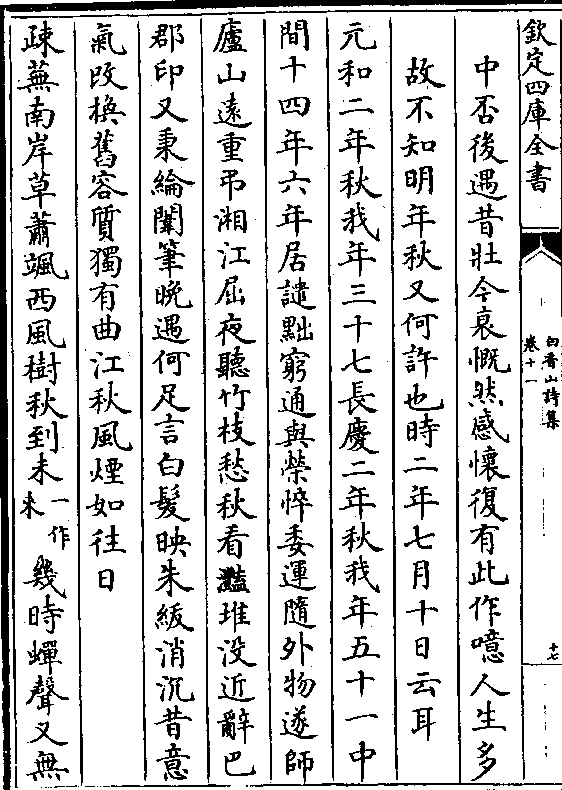 欽定四庫全書
白香山詩集
卷十一
十七
中否後遇昔壯今衰慨然感懷復有此作噫人生多
故不知明年秋又何許也時二年七月十日云耳
元和二年秋我年三十七長慶二年秋我年五十一中
間十四年六年居譴黜窮通與榮悴委運隨外物遂師
廬山遠重弔湘江屈夜聽竹枝愁秋看灎堆没近辭巴
郡印又秉綸闈筆晚遇何足言白髮映朱紱消沉昔意
氣改換舊容質獨有曲江秋風煙如往日
疎蕪南岸草蕭颯西風樹秋到未一作來幾時蟬聲又無